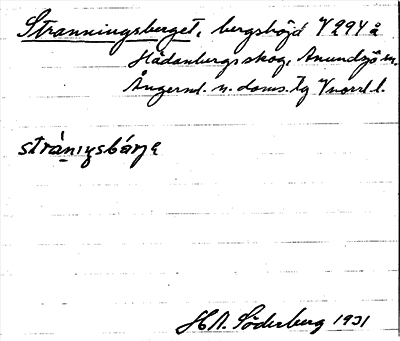 Stranningsberget, bergshöjd V 294 å
Hädanbergs skog, Anundsjö sn.
Ångerml. n. doms. hg Vnorrl. l.
strànıŋsbárjə
H.A. Söderberg 1931